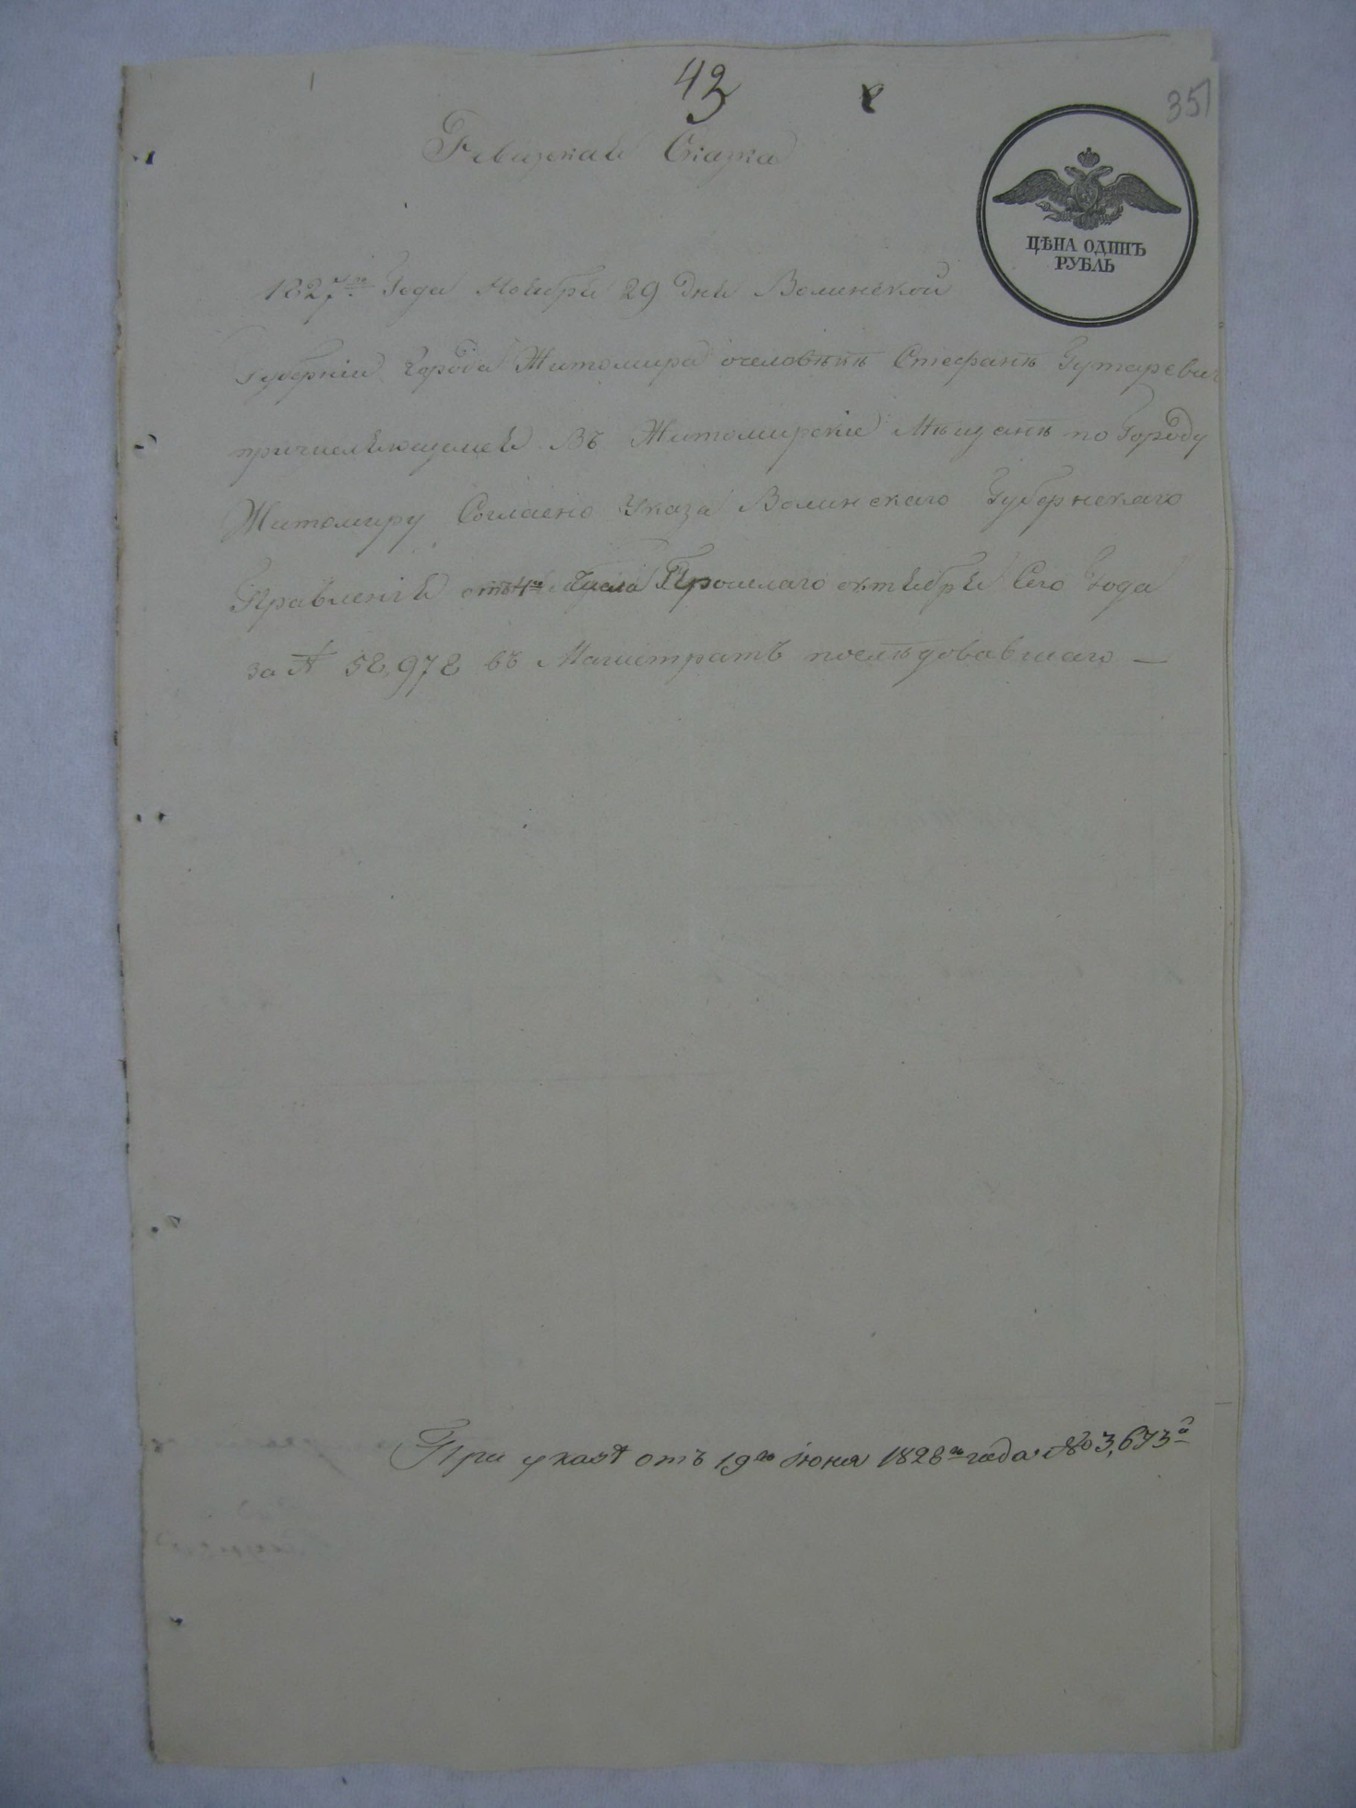 43
351
Ревизская Сказка
ЦѢНА ОДИНЪ
РУБЛЬ
1827го Года Ноября 29 дня Волинской
Губерніи города Житомира о человѣкѣ Стефанѣ Гутаревич
причисляющемся въ Житомирскіе Мѣщанѣ по Городу
Житомиру Согласно Указа Волинскаго Губернскаго
Правленія отъ 4го Числа Прошлаго октября Сего Года
за № 58,978 въ Магистратъ последовавшаго —
При указѣ отъ 19го Июня 1828го года № 3,673й